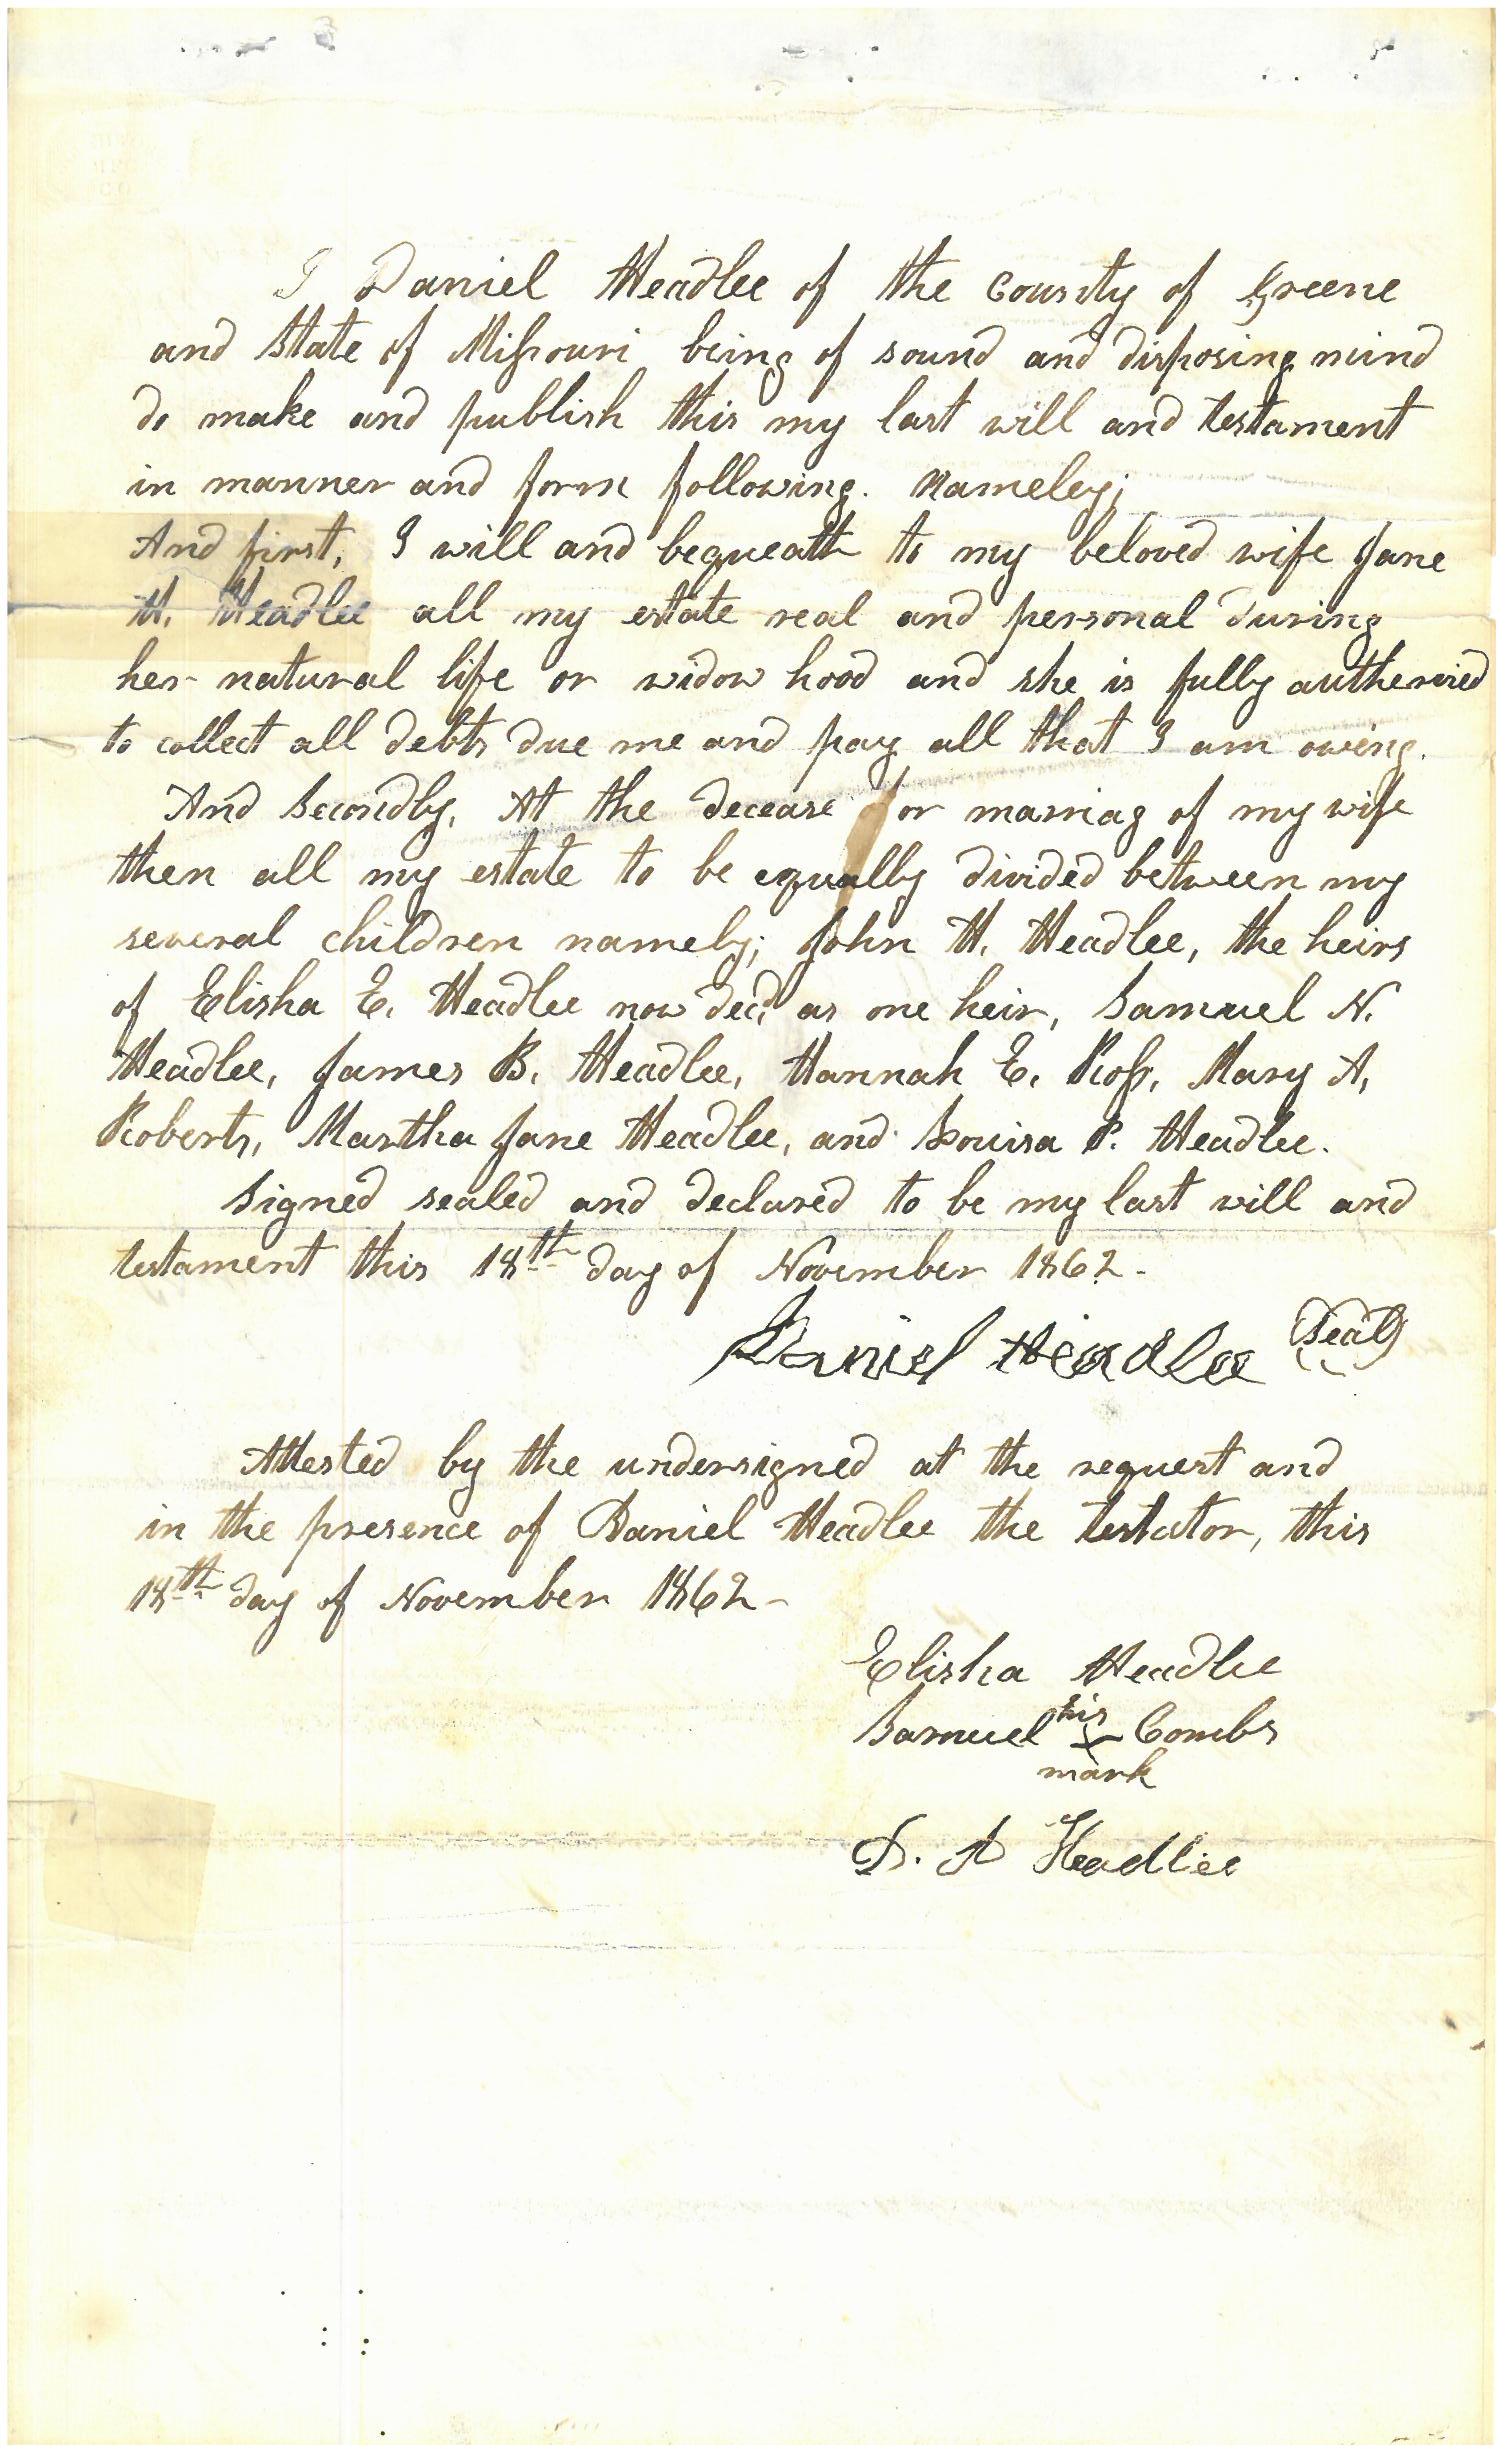 I Daniel Headlee of the County of Greene
and State of Missouri being of sound and disposing mind
do make and publish this my last will and testament
in manner and form following. Nameley;
And first, I will and bequeath to my beloved wife Jane
H. Headlee all my estate real and personal during
her natural life or widow hood and she is fully autherized
to collect all debts due me and pay all that I am owing.
And Secondly, At the decease or marriag of my wife
then all my estate to be equally divided between my
several children namely; John H. Headlee, the heirs
of Elisha E. Headlee now decd. as one heir, Samuel N.
Headlee, James B. Headlee, Hannah E. Ross, Mary A.
Roberts, Martha Jane Headlee, and Louisa P. Headlee.
Signed sealed and declared to be my last will and
testament this 18th day of November 1862.
Daniel Headlee (Seal)
Attested by the undersigned at the request and
in the presence of Daniel Headlee the testator, this
18th day of November 1862-
Elisha Headlee
Samuel his x Combs
mark
D. A Headlee